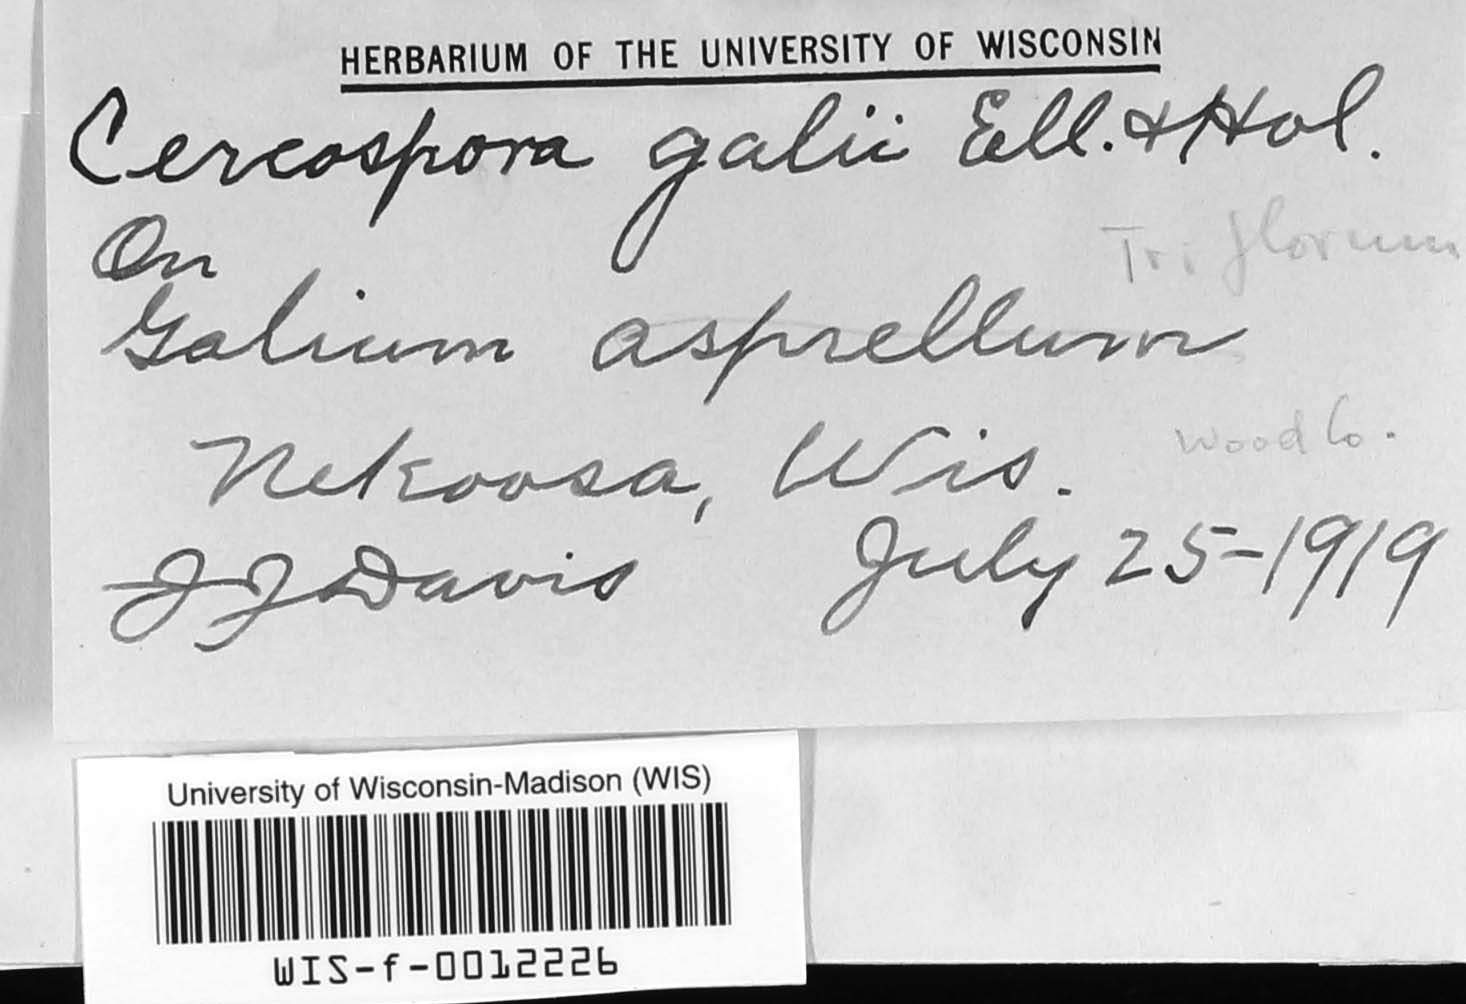 HERBARIUM OF THE UNIVERSITY OF WISCONSIN
Cercospora galii Ell. & Hol.
On
Tri florum
Galium asprellum
Nekoosa, Wis.
Wood Co.
J J Davis July 25-1919
University of Wisconsin-Madison (WIS)
WIS-f-0012226